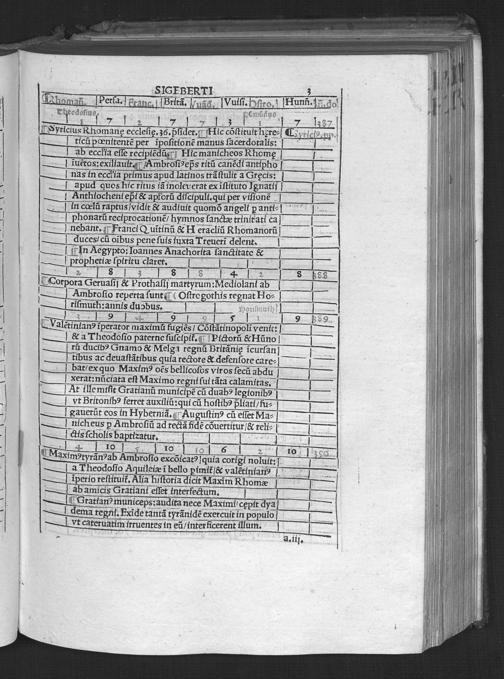 SIGEBERTI 3
Rhomañ. Persa. Franc. Britã. Vuãd. Vuisi. Ostro. Hunñ. ñ.do
Theodosius
1 7 2 7 7 3 1 7 387
Syricius Rhomanę ecclesię.36.psidet. Hic cõstituit hęre
ticũ pœnitentẽ per ipositionẽ manus sacerdotalis:
ab ecclia esse recipiẽdũ. Hic manicheos Rhomę
iuẽtos: exiliauit. Ambrosi⁹ eps ritũ canẽdi antipho
nas in ecclia primus apud latinos trãstulit a Gręcis:
apud quos hic ritus iã inoleuerat ex istituto Ignatii
Anthiocheni epi & aptorũ discipuli, qui per visionẽ
in cœlũ raptus/vidit & audiuit quomõ angeli p anti-
phonarũ reciprocationẽ/hymnos sanctæ trinitati ca
nebant. Franci Q uitinũ & H eracliũ Rhomanorũ
duces/cũ oibus pene suis iuxta Treueri delent.
In Aegypto: Ioannes Anachorita sanctitate &
prophetiæ spiritu claret.
2 8 3 8 8 4 2 8 388
Corpora Geruasij & Prothasij martyrum: Mediolani ab
Ambrosio reperta sunt. Ostrogothis regnat Ho-
rismuth: annis duobus.
3 9 4 9 9 5 1 9 389
Valẽtinian⁹ iperator maximũ fugiẽs/Cõstãtinopoli venit:
& a Theodosio paterne suscipit. Pictorũ & Hũno
rũ ducib⁹ Gnamo & Melga regnũ Britãnię icursan
tibus ac deuastãtibus quia rectore & defensore care-
bat/ex quo Maxim⁹ oẽs bellicosos viros secũ abdu
xerat: nũciata est Maximo regni sui tãta calamitas.
At ille misit Gratianũ municipẽ cũ duab⁹ legionib⁹
vt Britonib⁹ ferret auxiliũ: qui cũ hostib⁹ pliati/fu-
gauerũt eos in Hyberniã. Augustin⁹ cũ esset Ma-
nicheus p Ambrosiũ ad rectã fidẽ cõuertitur/& reli-
ctis scholis baptizatur.
4 10 5 10 10 6 2 10 390
Maxim⁹ tyrãn⁹ ab Ambrosio excõicat⁹/quia corigi noluit:
a Theodosio Aquileiæ i bello pimit/& valẽtinian⁹
iperio restituit. Alia historia dicit Maxim Rhomæ
ab amicis Gratiani esset interfectum.
Gratian⁹ municeps: audita nece Maximi/cepit dya
dema regni. Exide tantã tyrãnidẽ exercuit in populo
vt cateruatim irruentes in eũ/interficerent illum.
a.iij.